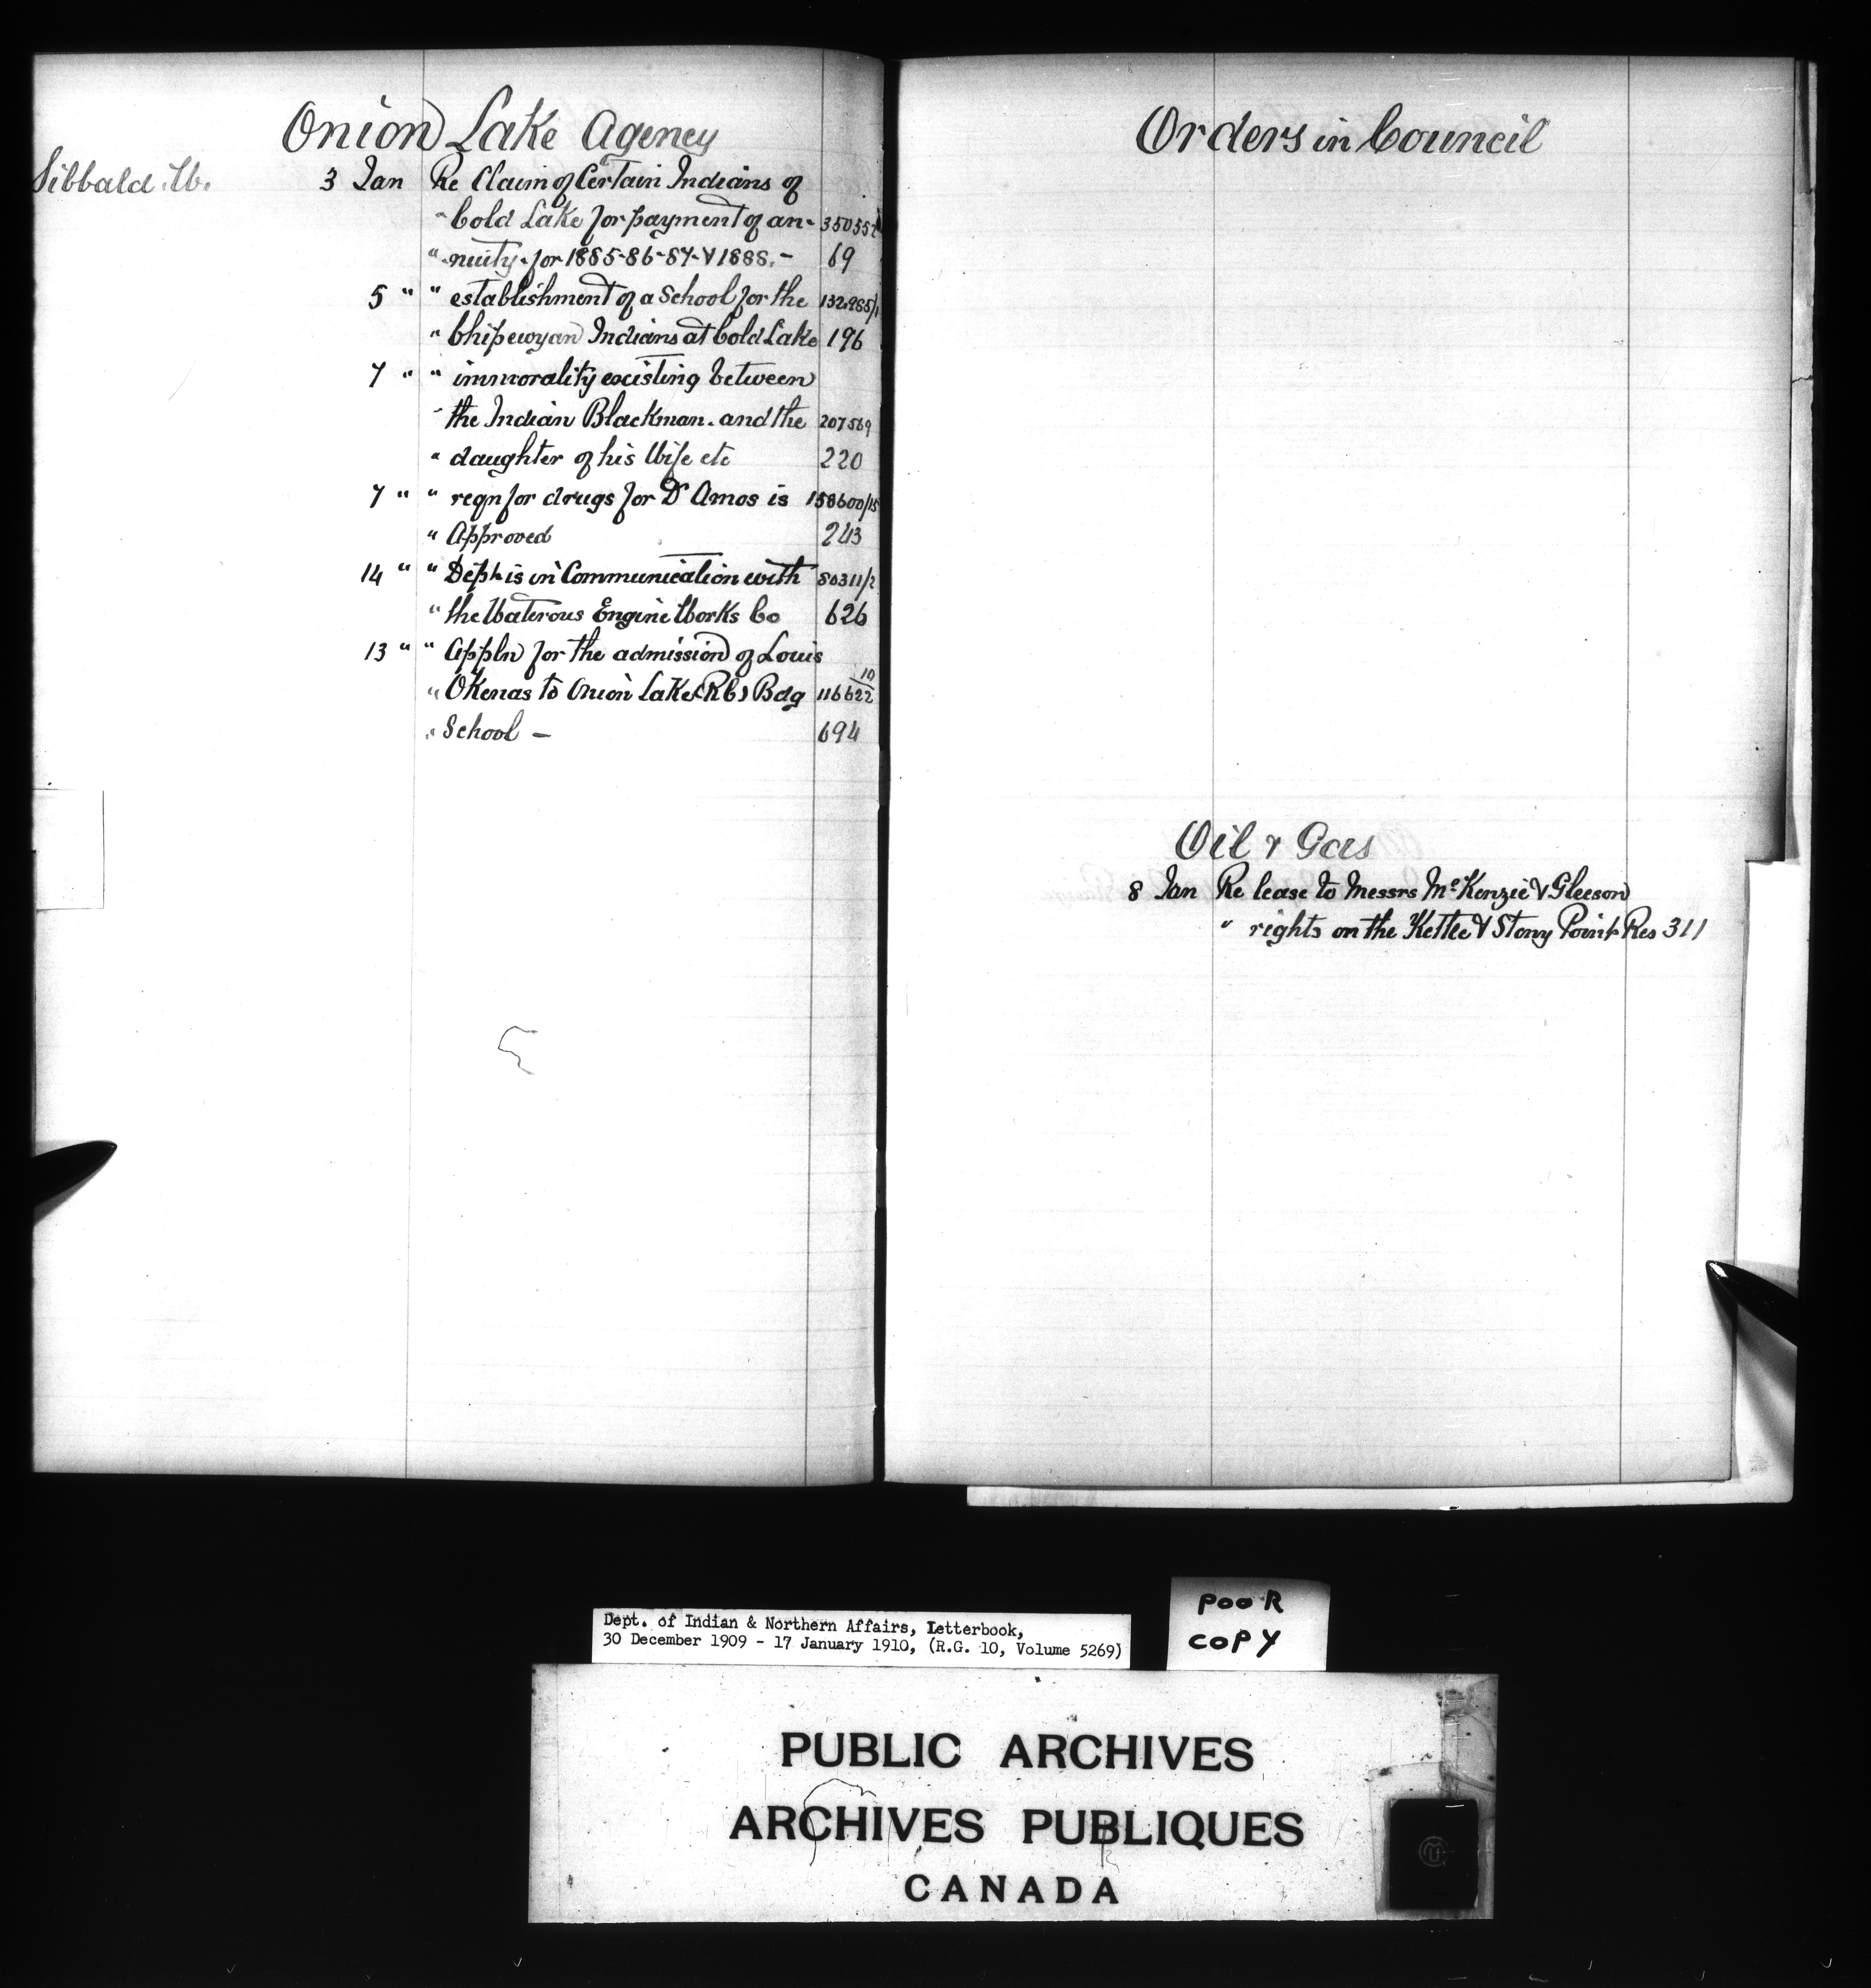 Onion Lake Agency
Sibbald W. 3 Jan Re Claim of Certain Indians of
" Cold Lake for payment of an- 350552
" nuity for 1885-86-87-& 1888. - 69
5 " " establishment of a School for the 132,985/1
" Chipewyan Indians at Cold Lake 196
7 " " immorality existing between
" the Indian Blackman. and the 207569
" daughter of his Wife etc 220
7 " " reqn for drugs for Dr Amos is 158600/15
" Approved 243
14 " " Dept is in Communication with 80311/2
" the Waterous Engine Works Co 626
13 " " Appln for the admission of Louis
" Okenas to Onion Lake (RC) Bdg 116622/10
" School - 694
Orders in Council
Oil & Gas
8 Jan Re lease to Messrs McKenzie & Gleeson
" rights on the Kettle & Stony Point Res 311
Dept. of Indian & Northern Affairs, Letterbook,
30 December 1909 - 17 January 1910, (R.G. 10, Volume 5269)
POOR
COPY
PUBLIC ARCHIVES
ARCHIVES PUBLIQUES
CANADA